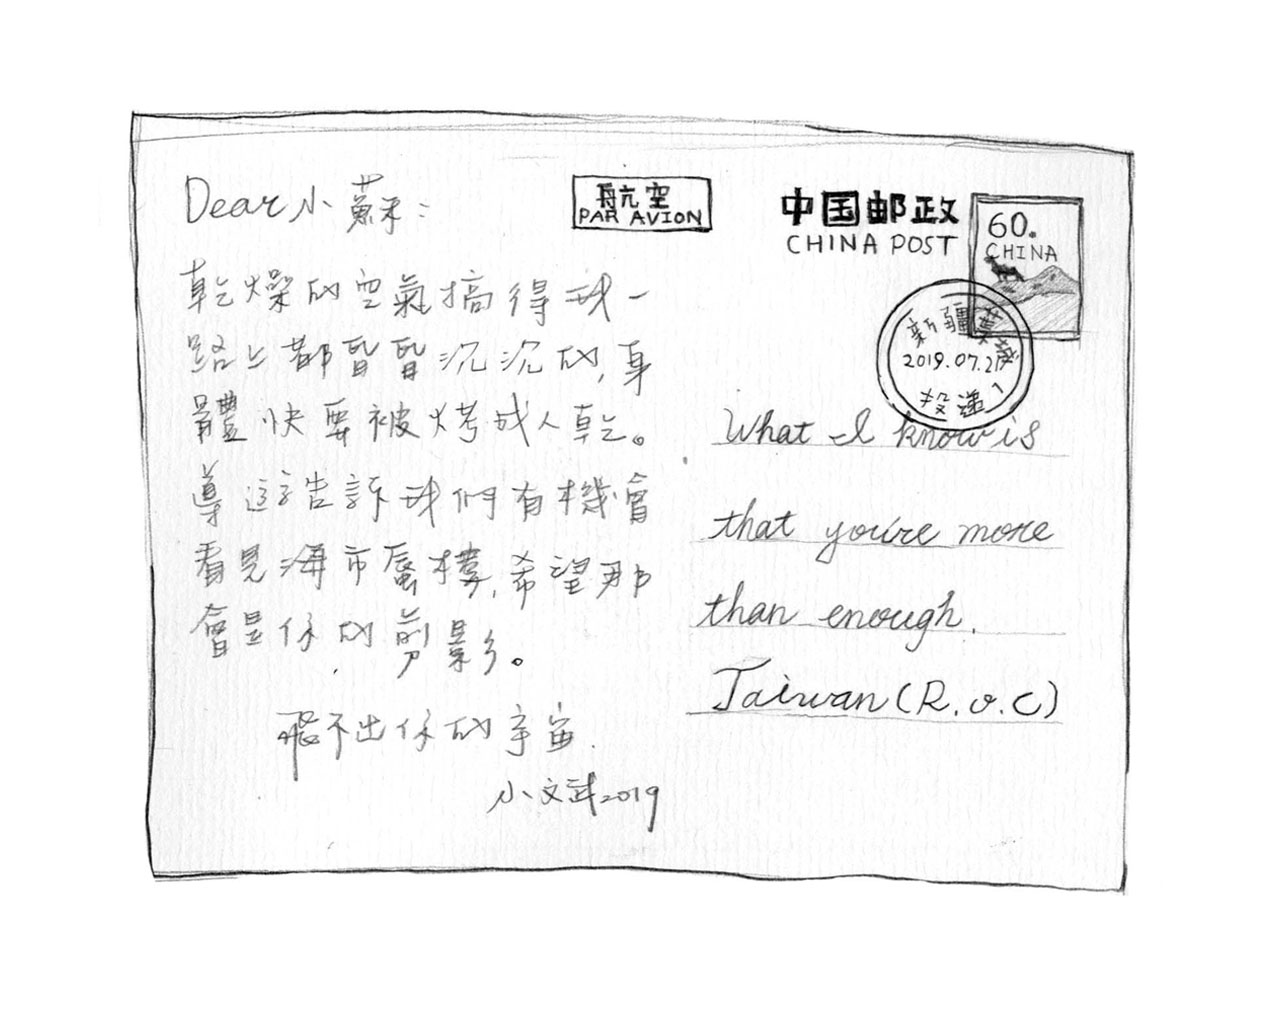 Dear 小蘇：
乾燥的空氣搞得我一
路上都昏昏沉沉的,身
體快要被烤成人乾。
導遊告訴我們有機會
看見海市蜃樓,希望那
會是你的剪影。
飛不出你的宇宙.
小文武2019
航空
PAR AVION
中国邮政
CHINA POST
60.
CHINA
新疆
2019.07.2
投递
What I know is
that you're more
than enough.
Taiwan (R.O.C)